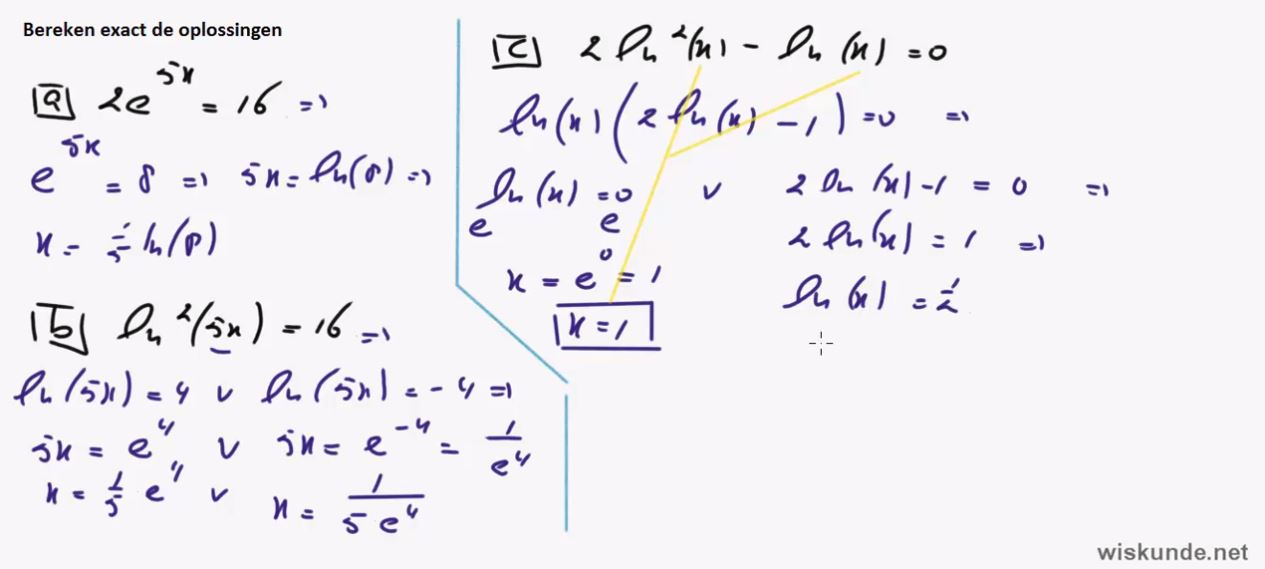 Bereken exact de oplossingen
a 2e^{5x} = 16 ⇒
e^{5x} = 8 ⇒ 5x = ln(8) ⇒
x = 1/5 ln(8)
b ln²(5x) = 16 ⇒
ln(5x) = 4 v ln(5x) = -4 ⇒
5x = e^4 v 5x = e^{-4} = 1/e^4
x = 1/5 e^4 v x = 1/(5e^4)
c 2 ln²(x) - ln(x) = 0
ln(x)(2 ln(x) - 1) = 0 ⇒
ln(x) = 0 v 2 ln(x) - 1 = 0 ⇒
e e 2 ln(x) = 1 ⇒
x = e^0 = 1 ln(x) = 1/2
x = 1
wiskunde.net